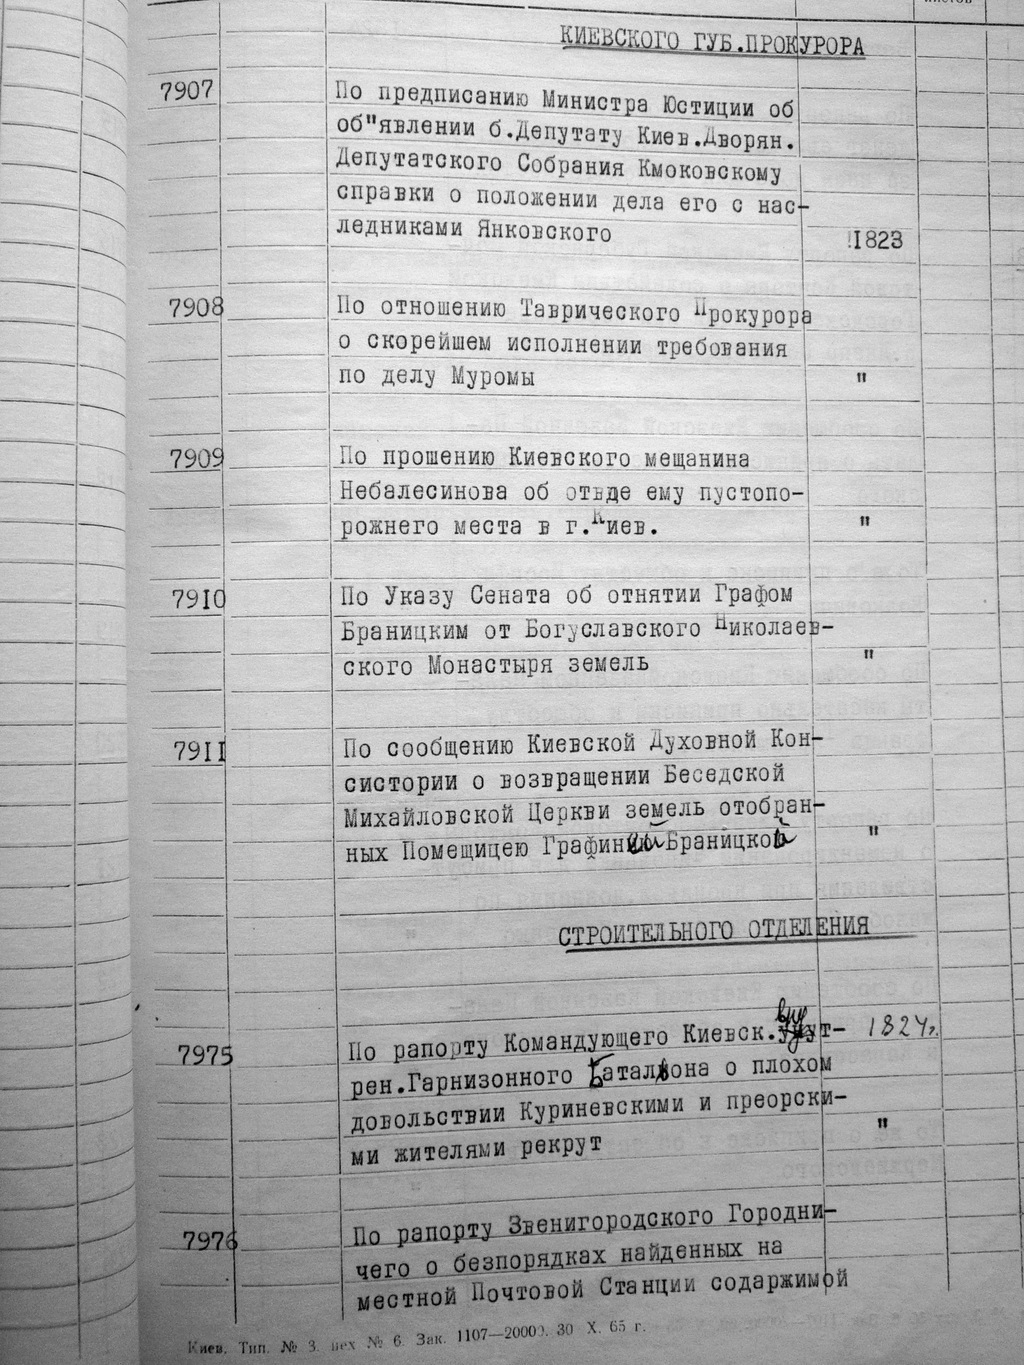 КИЕВСКОГО ГУБ.ПРОКУРОРА
7907 По предписанию Министра Юстиции об
об"явлении б.Депутату Киев.Дворян.
Депутатского Собрания Кмоковскому
справки о положении дела его с нас-
ледниками Янковского 1823
7908 По отношению Таврического Прокурора
о скорейшем исполнении требования
по делу Муромы "
7909 По прошению Киевского мещанина
Небалесинова об отвде ему пустопо-
рожнего места в г.Киев. "
7910 По Указу Сената об отнятии Графом
Браницким от Богуславского Николаев-
ского Монастыря земель "
7911 По сообщению Киевской Духовной Кон-
систории о возвращении Беседской
Михайловской Церкви земель отобран-
ных Помещицею Графиней Браницкой "
СТРОИТЕЛЬНОГО ОТДЕЛЕНИЯ
7975 По рапорту Командующего Киевск.внут- 1824г.
рен.Гарнизонного Баталіона о плохом
довольствии Куриневскими и преорски-
ми жителями рекрут "
7976 По рапорту Звенигородского Городни-
чего о безпорядках найденных на
местной Почтовой Станции содаржимой
Киев. Тип. № 3. цех № 6. Зак. 1107—20000. 30 X. 65 г.